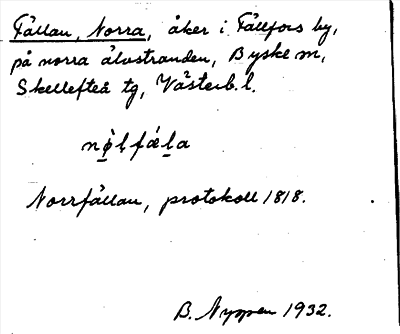 Fällan, Norra, åker i Fällfors by,
på norra älvstranden, Byske sn,
Skellefteå tg, Västerb. l.
Norrfällan, protokoll 1818.
B. Nyppen 1932.